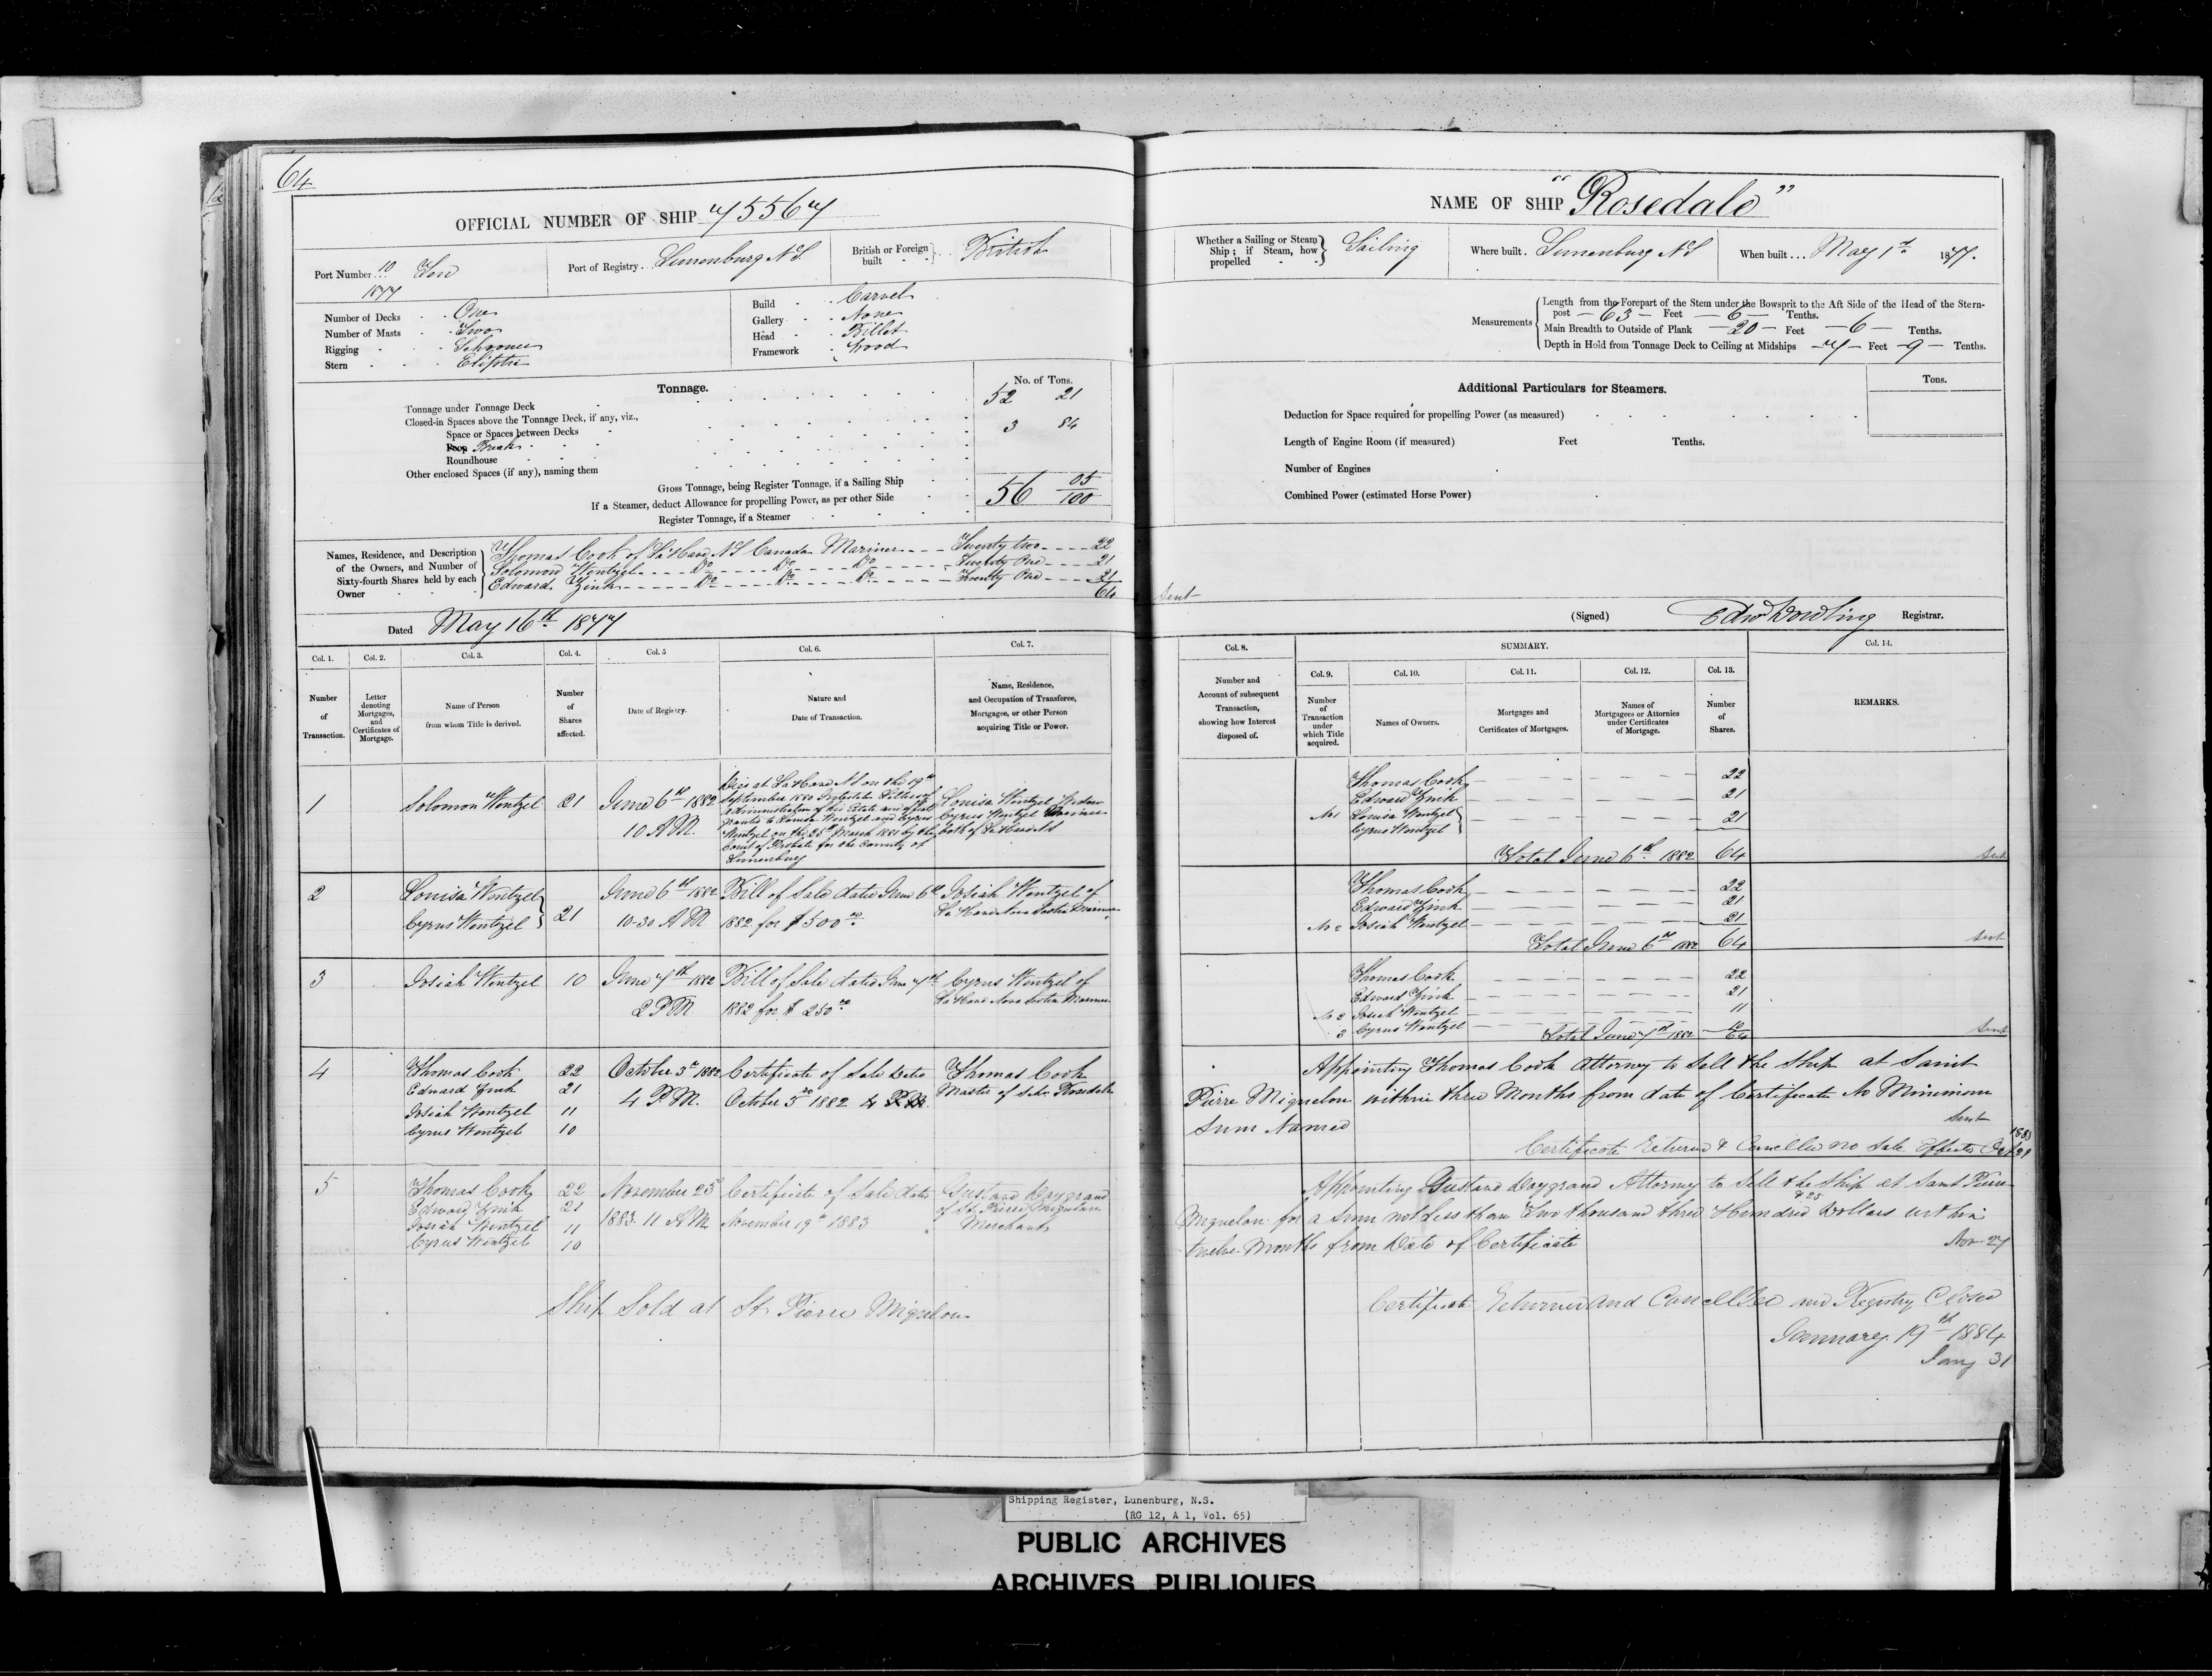 64
OFFICIAL NUMBER OF SHIP 75567
Port Number 10/1877 Ten
Port of Registry Lunenburg N.S.
British or Foreign built British
Number of Decks One
Number of Masts Two
Rigging Schooner
Stern Eliptic
Build Carvel
Gallery None
Head Billet
Framework Wood
Tonnage.
No. of Tons.
Tonnage under Tonnage Deck 52 21
Closed-in Spaces above the Tonnage Deck, if any, viz.,
Space or Spaces between Decks 3 84
Poop Break
Roundhouse
Other enclosed Spaces (if any), naming them
Gross Tonnage, being Register Tonnage, if a Sailing Ship 56 05/100
If a Steamer, deduct Allowance for propelling Power, as per other Side
Register Tonnage, if a Steamer
Names, Residence, and Description of the Owners, and Number of Sixty-fourth Shares held by each Owner
Thomas Cook of LaHave N.S Canada Mariner Twenty two 22
Solomon Wentzel Do Do Do Twenty One 21
Edward Zink Do Do Do Twenty One 21
64
Dated May 16th 1877
Col. 1. Number of Transaction.
Col. 2. Letter denoting Mortgages, and Certificates of Mortgage.
Col. 3. Name of Person from whom Title is derived.
Col. 4. Number of Shares affected.
Col. 5 Date of Registry.
Col. 6. Nature and Date of Transaction.
Col. 7. Name, Residence, and Occupation of Transferee, Mortgagee, or other Person acquiring Title or Power.
1 Solomon Wentzel 21 June 6th 1882 10 A.M.
Died at LaHave N.S on the 19th
September 1880 Intestate Letters of
Administration of his Estate and effects
granted to Louisa Wentzel and Cyrus
Wentzel on the 25th March 1881 by the
Court of Probate for the County of
Lunenburg
Louisa Wentzel Widow
Cyrus Wentzel Mariner
both of LaHave N.S
2 Louisa Wentzel
Cyrus Wentzel 21
June 6th 1882 10-30 A.M.
Bill of Sale dated June 6th
1882 for $500.00
Josiah Wentzel of
LaHave Nova Scotia Mariner
3 Josiah Wentzel 10 June 7th 1882
2 P.M.
Bill of Sale dated June 7th
1882 for $250.00
Cyrus Wentzel of
LaHave Nova Scotia Mariner
4 Thomas Cook 22
Edward Zink 21
Josiah Wentzel 11
Cyrus Wentzel 10
October 5th 1882
4 P.M.
Certificate of Sale dated
October 5th 1882
Thomas Cook
Master of Schr Rosedale
5 Thomas Cook 22
Edward Zink 21
Josiah Wentzel 11
Cyrus Wentzel 10
November 25th
1883 11 A.M.
Certificate of Sale dated
November 19th 1883
Gustave Daygrand
of St. Pierre Miquelon
Merchant
Ship Sold at St. Pierre Miquelon
NAME OF SHIP "Rosedale"
Whether a Sailing or Steam Ship; if Steam, how propelled Sailing
Where built Lunenburg N.S
When built May 1st 1877.
Measurements
Length from the Forepart of the Stem under the Bowsprit to the Aft Side of the Head of the Stern-
post 63 Feet 6 Tenths.
Main Breadth to Outside of Plank 20 Feet 6 Tenths.
Depth in Hold from Tonnage Deck to Ceiling at Midships 7 Feet 9 Tenths.
Additional Particulars for Steamers.
Tons.
Deduction for Space required for propelling Power (as measured)
Length of Engine Room (if measured) Feet Tenths.
Number of Engines
Combined Power (estimated Horse Power)
Sent
(Signed) Edwd Dowling Registrar.
Col. 8. Number and Account of subsequent Transaction, showing how Interest disposed of.
SUMMARY.
Col. 9. Number of Transaction under which Title acquired.
Col. 10. Names of Owners.
Col. 11. Mortgages and Certificates of Mortgages.
Col. 12. Names of Mortgagees or Attornies under Certificates of Mortgage.
Col. 13. Number of Shares.
Col. 14. REMARKS.
Thomas Cook 22
Edward Zink 21
No 1 Louisa Wentzel
Cyrus Wentzel 21
Total June 6th 1882 64
Sent
Thomas Cook 22
Edward Zink 21
No 2 Josiah Wentzel 21
Total June 6th 1882 64
Sent
Thomas Cook 22
Edward Zink 21
No 2 Josiah Wentzel 11
3 Cyrus Wentzel 10
Total June 7th 1882 64
Sent
Appointing Thomas Cook Attorney to Sell the Ship at Saint
Pierre Miquelon within three Months from date of Certificate No Minimum
Sum Named
Sent
Certificate Returned & Cancelled no Sale Effected Oct 29 1883
Appointing Gustave Daygrand Attorney to Sell the Ship at Saint Pierre
Miquelon for a Sum not Less than Two thousand three Hundred & 25 Dollars within
twelve Months from Date of Certificate
Nov 27
Certificate Returned and Cancelled and Registry Closed
January 19th 1884
Jany 31
Shipping Register, Lunenburg, N.S.
(RG 12, A 1, Vol. 65)
PUBLIC ARCHIVES
ARCHIVES PUBLIQUES